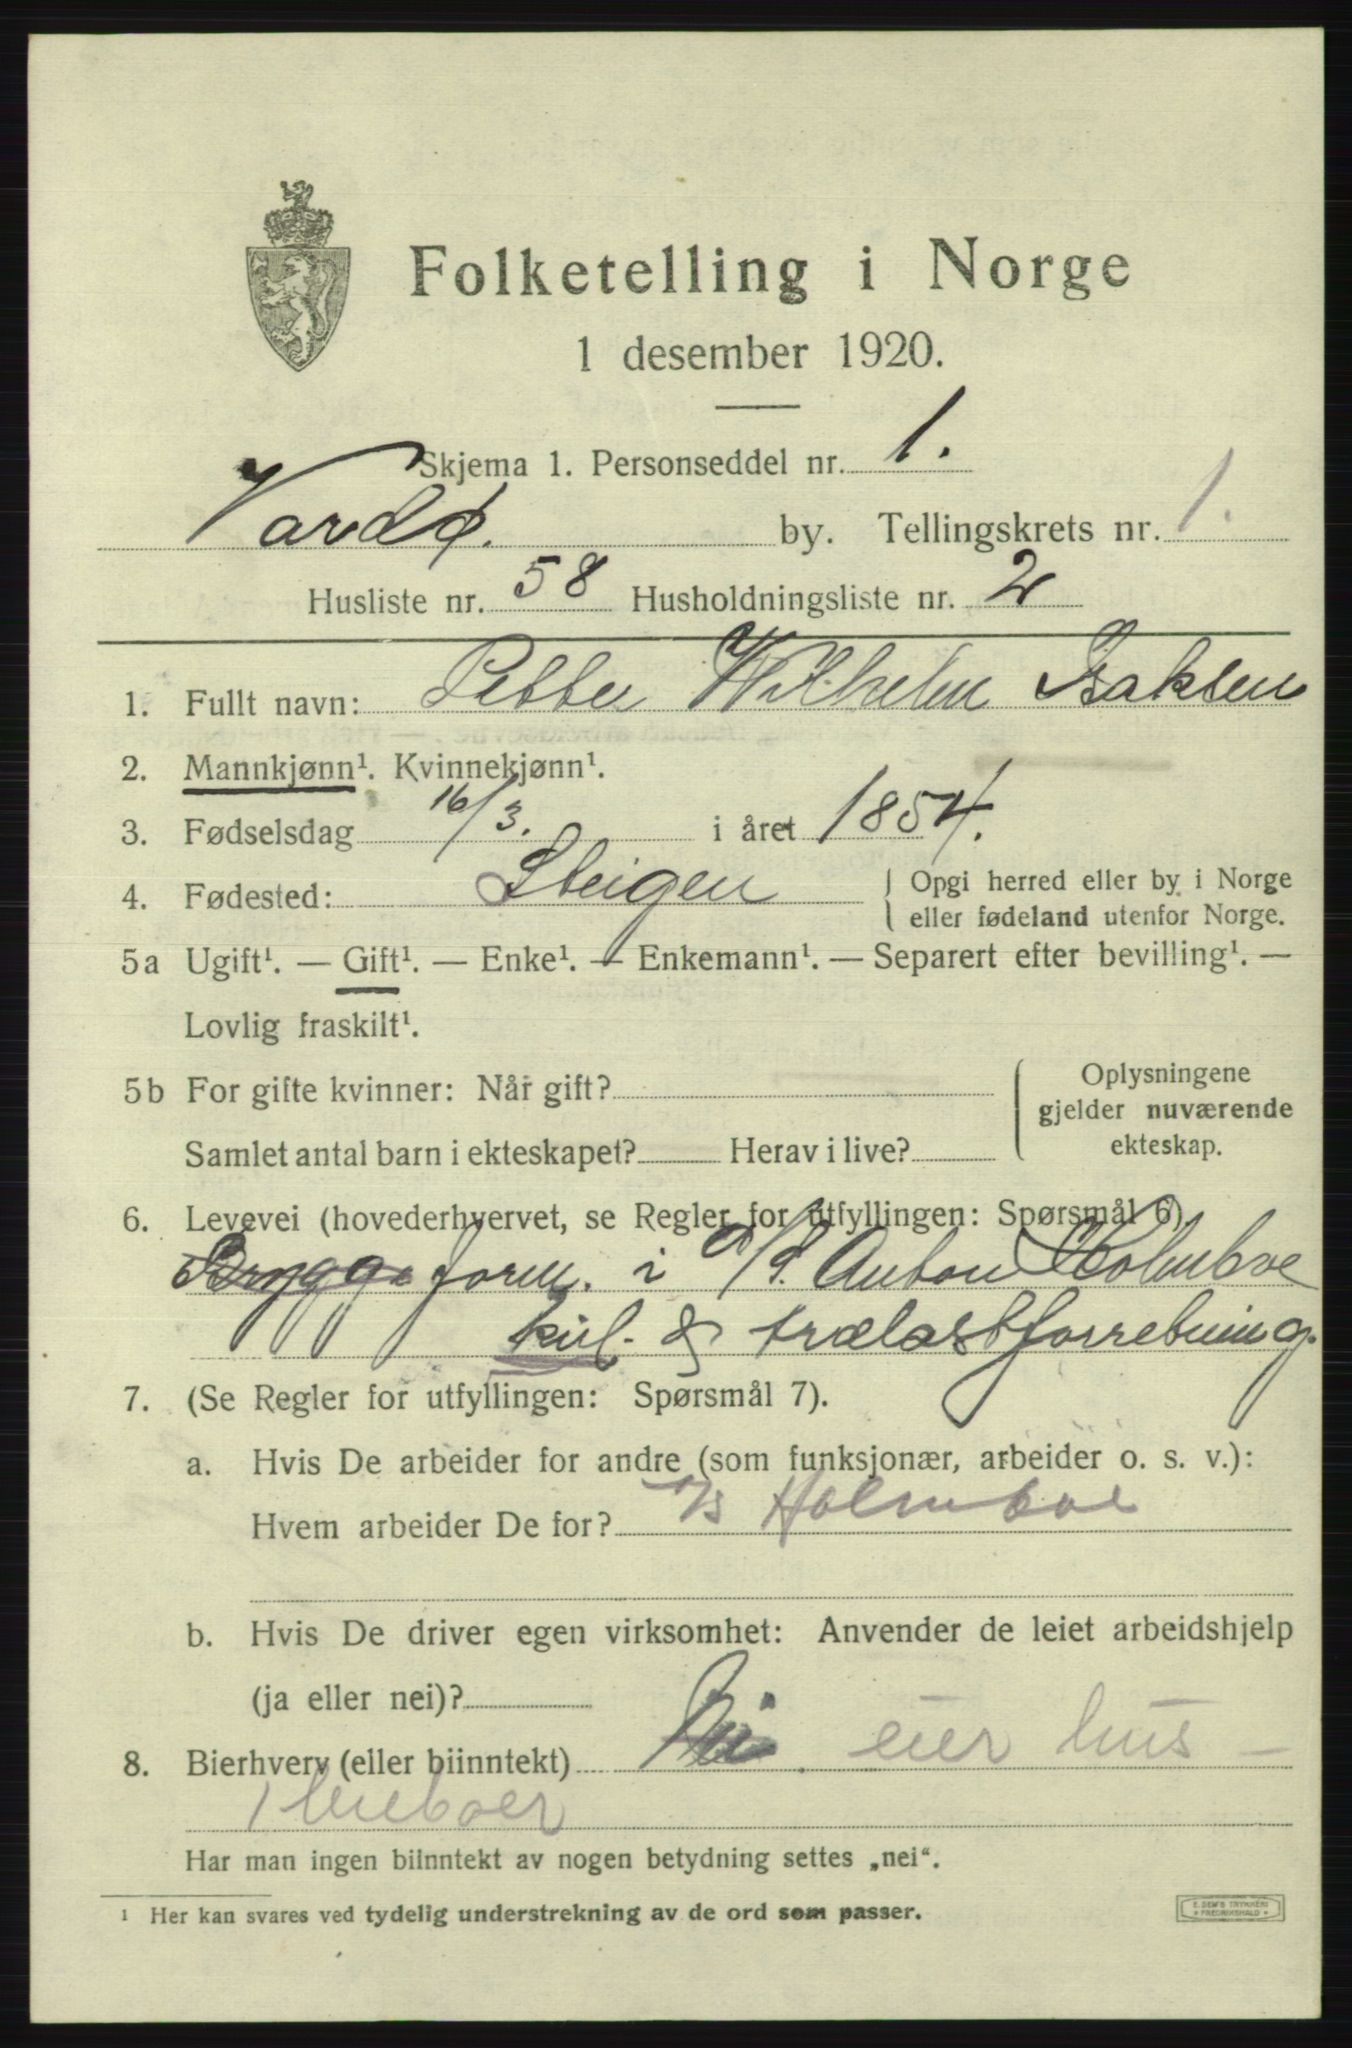 Folketelling i Norge
1 desember 1920.
Skjema 1. Personseddel nr. 1.
Vardø. by. Tellingskrets nr. 1.
Husliste nr. 58 Husholdningsliste nr. 2
1. Fullt navn: Petter Wilhelm Isaksen
2. Mannkjønn¹. Kvinnekjønn¹.
3. Fødselsdag 16/3. i året 1854.
4. Fødested: Steigen { Opgi herred eller by i Norge
eller fødeland utenfor Norge.
5a Ugift¹. — Gift¹. — Enke¹. — Enkemann¹. — Separert efter bevilling¹. —
Lovlig fraskilt¹.
5b For gifte kvinner: Når gift? { Oplysningene
gjelder nuværende
Samlet antal barn i ekteskapet? Herav i live? ekteskap.
6. Levevei (hovederhvervet, se Regler for utfyllingen: Spørsmål 6).
Brygge form. i A/S. Anton Holmboe
kul. & trælastforretning.
7. (Se Regler for utfyllingen: Spørsmål 7).
a. Hvis De arbeider for andre (som funksjonær, arbeider o. s. v.):
Hvem arbeider De for? A/S Holmboe
b. Hvis De driver egen virksomhet: Anvender de leiet arbeidshjelp
(ja eller nei)?
8. Bierhverv (eller biinntekt) eier hus –
1 leieboer
Har man ingen biinntekt av nogen betydning settes „nei“.
¹ Her kan svares ved tydelig understrekning av de ord som passer.
E. SEM'S TRYKKERI
* FREDRIKSHALD *